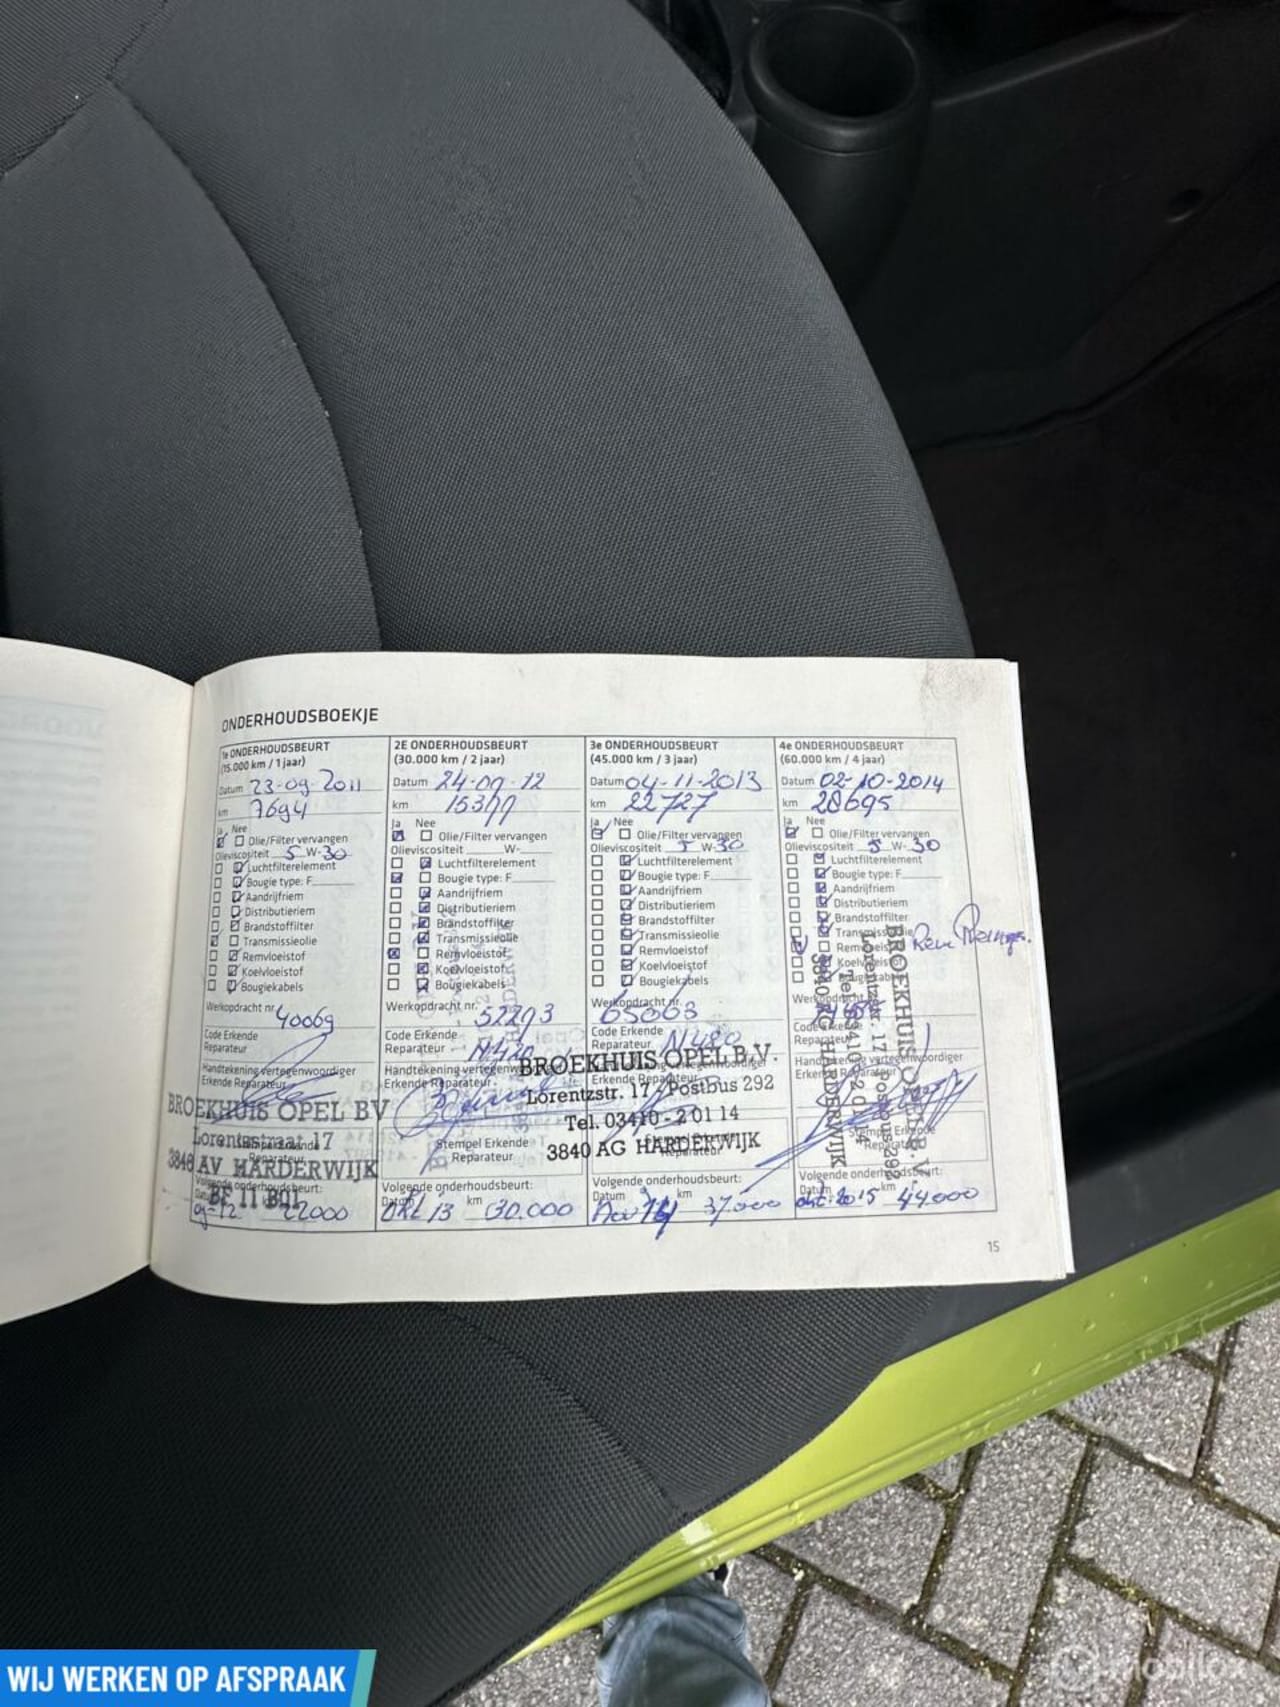 ONDERHOUDSBOEKJE
1e ONDERHOUDSBEURT
(15.000 km / 1 jaar)
Datum 23-09-2011
km 7694
Ja Nee
Olie/Filter vervangen
Olieviscositeit 5 W-30
Luchtfilterelement
Bougie type: F
Aandrijfriem
Distributieriem
Brandstoffilter
Transmissieolie
Remvloeistof
Koelvloeistof
Bougiekabels
Werkopdracht nr. 40069
Code Erkende
Reparateur
Handtekening vertegenwoordiger
Erkende Reparateur
BROEKHUIS OPEL BV
Lorentsstraat 17
Stempel Erkende
Reparateur
3846 AV HARDERWIJK
Volgende onderhoudsbeurt:
Datum
09-12 22000
2E ONDERHOUDSBEURT
(30.000 km / 2 jaar)
Datum 24-09-12
km
Ja Nee
Olie/Filter vervangen
Olieviscositeit W-
Luchtfilterelement
Bougie type: F
Aandrijfriem
Distributieriem
Brandstoffilter
Transmissieolie
Remvloeistof
Koelvloeistof
Bougiekabels
Werkopdracht nr. 52293
Code Erkende
Reparateur N420
Handtekening vertegenwoordiger
Erkende Reparateur
Stempel Erkende
Reparateur
Volgende onderhoudsbeurt:
Datum km
13 30.000
3e ONDERHOUDSBEURT
(45.000 km / 3 jaar)
Datum 04-11-2013
km 22727
Ja Nee
Olie/Filter vervangen
Olieviscositeit 5 W-30
Luchtfilterelement
Bougie type: F
Aandrijfriem
Distributieriem
Brandstoffilter
Transmissieolie
Remvloeistof
Koelvloeistof
Bougiekabels
Werkopdracht nr.
65063
Code Erkende
Reparateur N420
Erkende Reparateur
BROEKHUIS OPEL B.V.
Lorentzstr. 17 / Postbus 292
Tel. 03410 - 2 01 14
3840 AG HARDERWIJK
Reparateur
Volgende onderhoudsbeurt:
Datum km
Nov 14 37.000
4e ONDERHOUDSBEURT
(60.000 km / 4 jaar)
Datum 02-10-2014
km 28695
Ja Nee
Olie/Filter vervangen
Olieviscositeit 5 W-30
Luchtfilterelement
Bougie type: F
Aandrijfriem
Distributieriem
Brandstoffilter
Transmissieolie
Koelvloeistof
Bougiekabels
Werkopdracht nr.
Code Erkende
Reparateur
Handtekening vertegenwoordiger
BROEKHUIS OPEL B.V.
Lorentzstr. 17 Postbus 292
Tel. 03410 - 2 01 14
3840 AG HARDERWIJK
Stempel Erkende
Reparateur
Volgende onderhoudsbeurt:
Datum km
okt-2015 44.000
15
WIJ WERKEN OP AFSPRAAK
mobilox